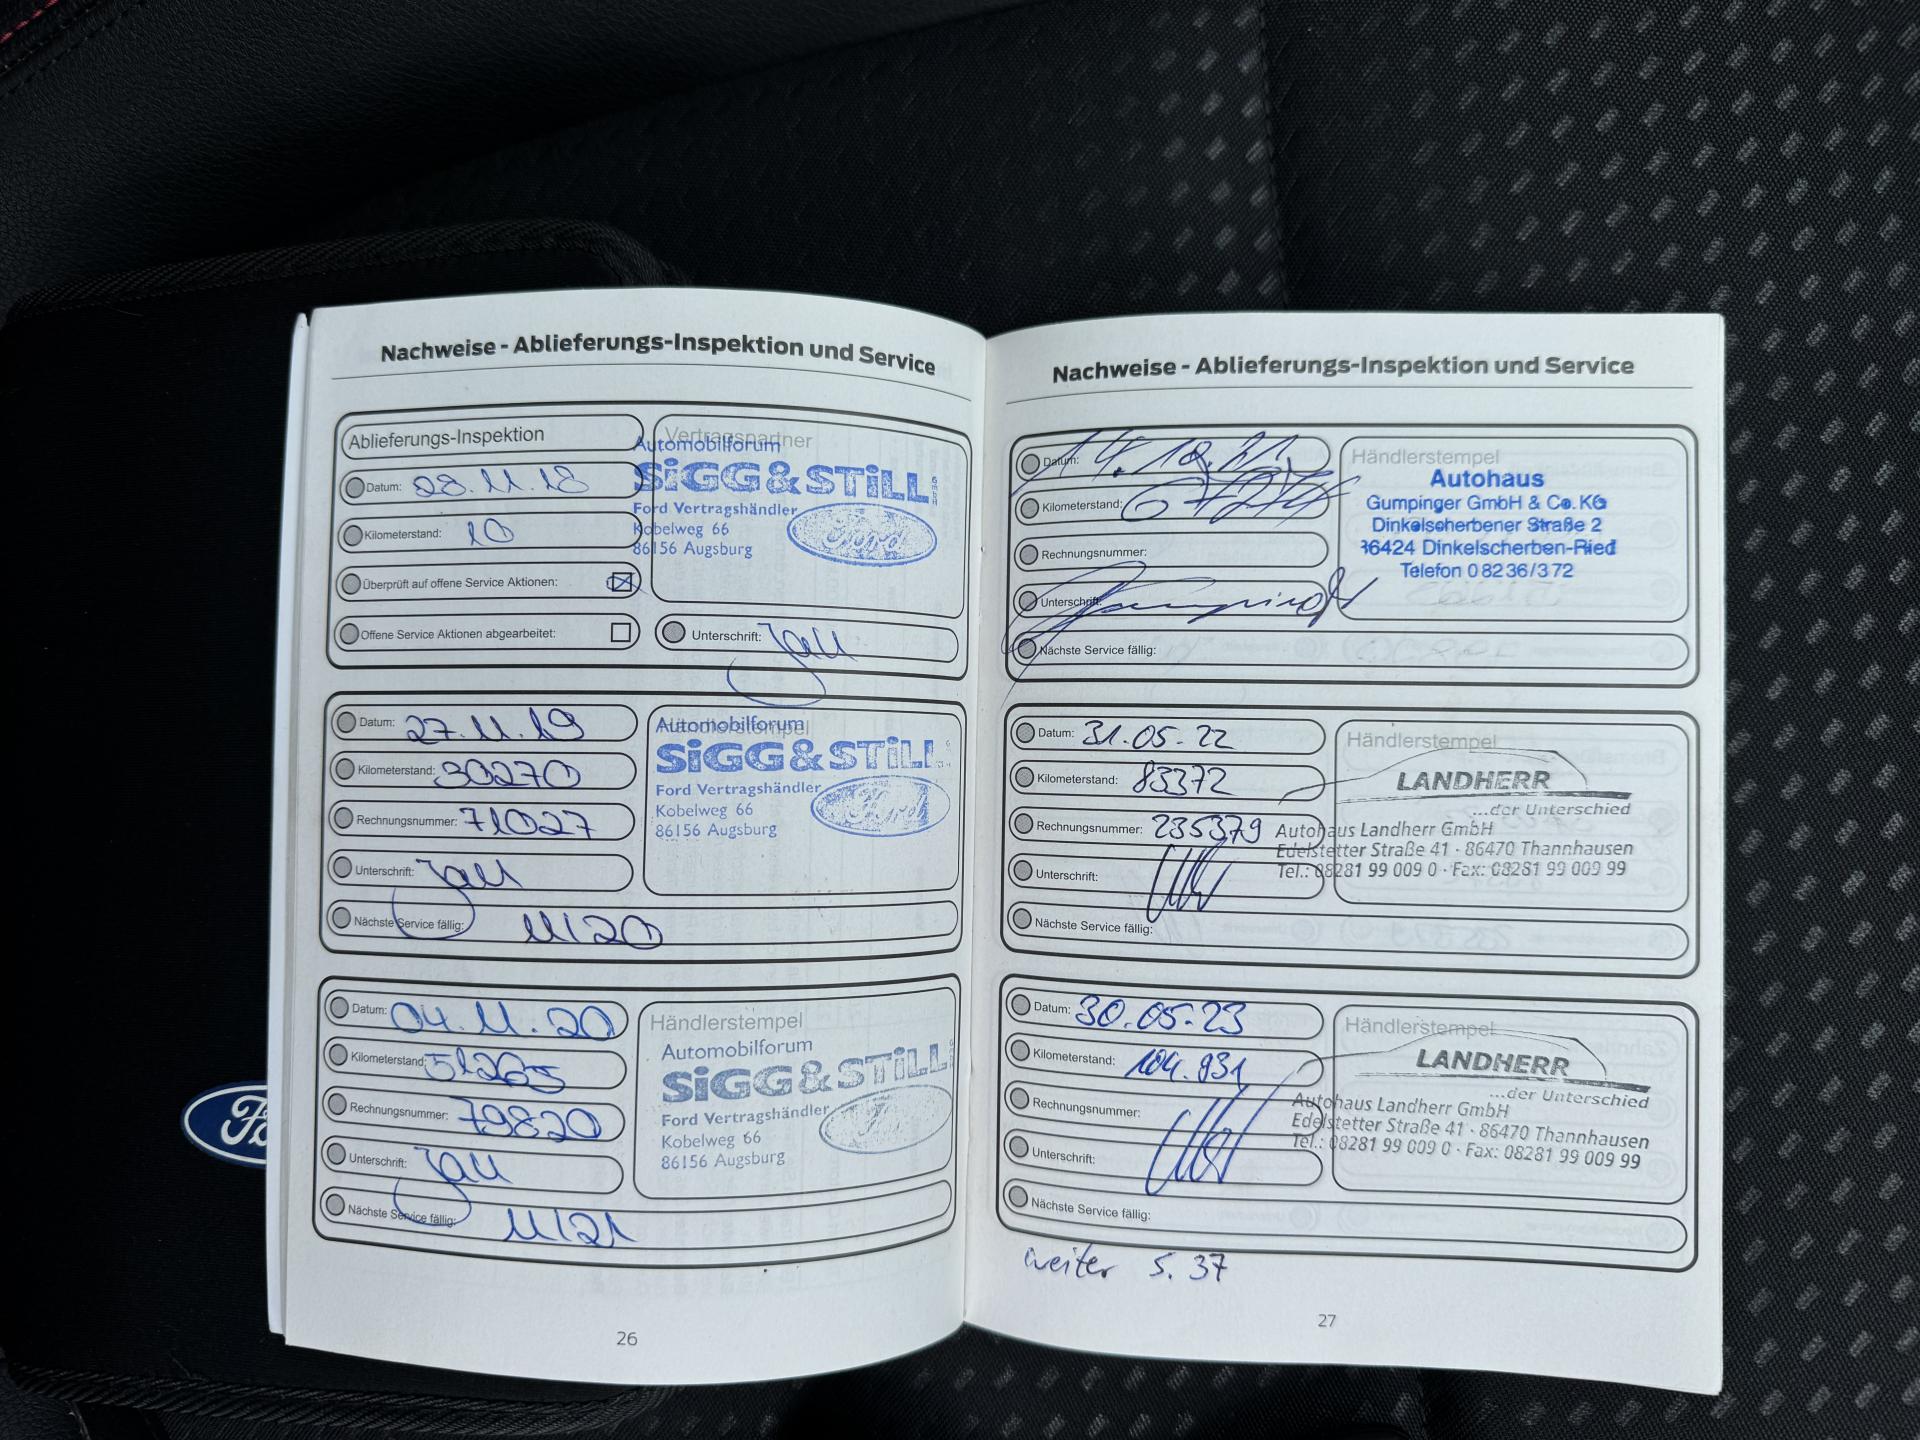 Nachweise - Ablieferungs-Inspektion und Service
Ablieferungs-Inspektion
Datum: 28.11.18
Kilometerstand: 10
Überprüft auf offene Service Aktionen:
Offene Service Aktionen abgearbeitet:
Vertragspartner
Automobilforum
SiGG & STiLL GmbH
Ford Vertragshändler
Kobelweg 66
86156 Augsburg
Ford
Unterschrift:
Datum: 27.11.19
Kilometerstand: 30270
Rechnungsnummer: 71027
Unterschrift:
Nächste Service fällig: 11/20
Händlerstempel
Automobilforum
SiGG & STiLL
Ford Vertragshändler
Kobelweg 66
86156 Augsburg
Ford
Datum: 04.11.20
Kilometerstand: 51265
Rechnungsnummer: 79820
Unterschrift:
Nächste Service fällig: 11/21
Händlerstempel
Automobilforum
SiGG & STiLL
Ford Vertragshändler
Kobelweg 66
86156 Augsburg
26
Nachweise - Ablieferungs-Inspektion und Service
Datum: 14.10.21
Kilometerstand: 67274
Rechnungsnummer:
Unterschrift:
Nächste Service fällig:
Händlerstempel
Autohaus
Gumpinger GmbH & Co. KG
Dinkelscherbener Straße 2
86424 Dinkelscherben-Ried
Telefon 0 82 36/3 72
Datum: 31.05.22
Kilometerstand: 83372
Rechnungsnummer: 235379
Unterschrift:
Nächste Service fällig:
Händlerstempel
LANDHERR
...der Unterschied
Autohaus Landherr GmbH
Edelstetter Straße 41 · 86470 Thannhausen
Tel.: 08281 99 009 0 · Fax: 08281 99 009 99
Datum: 30.05.23
Kilometerstand: 104.931
Rechnungsnummer:
Unterschrift:
Nächste Service fällig:
Händlerstempel
LANDHERR
...der Unterschied
Autohaus Landherr GmbH
Edelstetter Straße 41 · 86470 Thannhausen
Tel.: 08281 99 009 0 · Fax: 08281 99 009 99
weiter S. 37
27